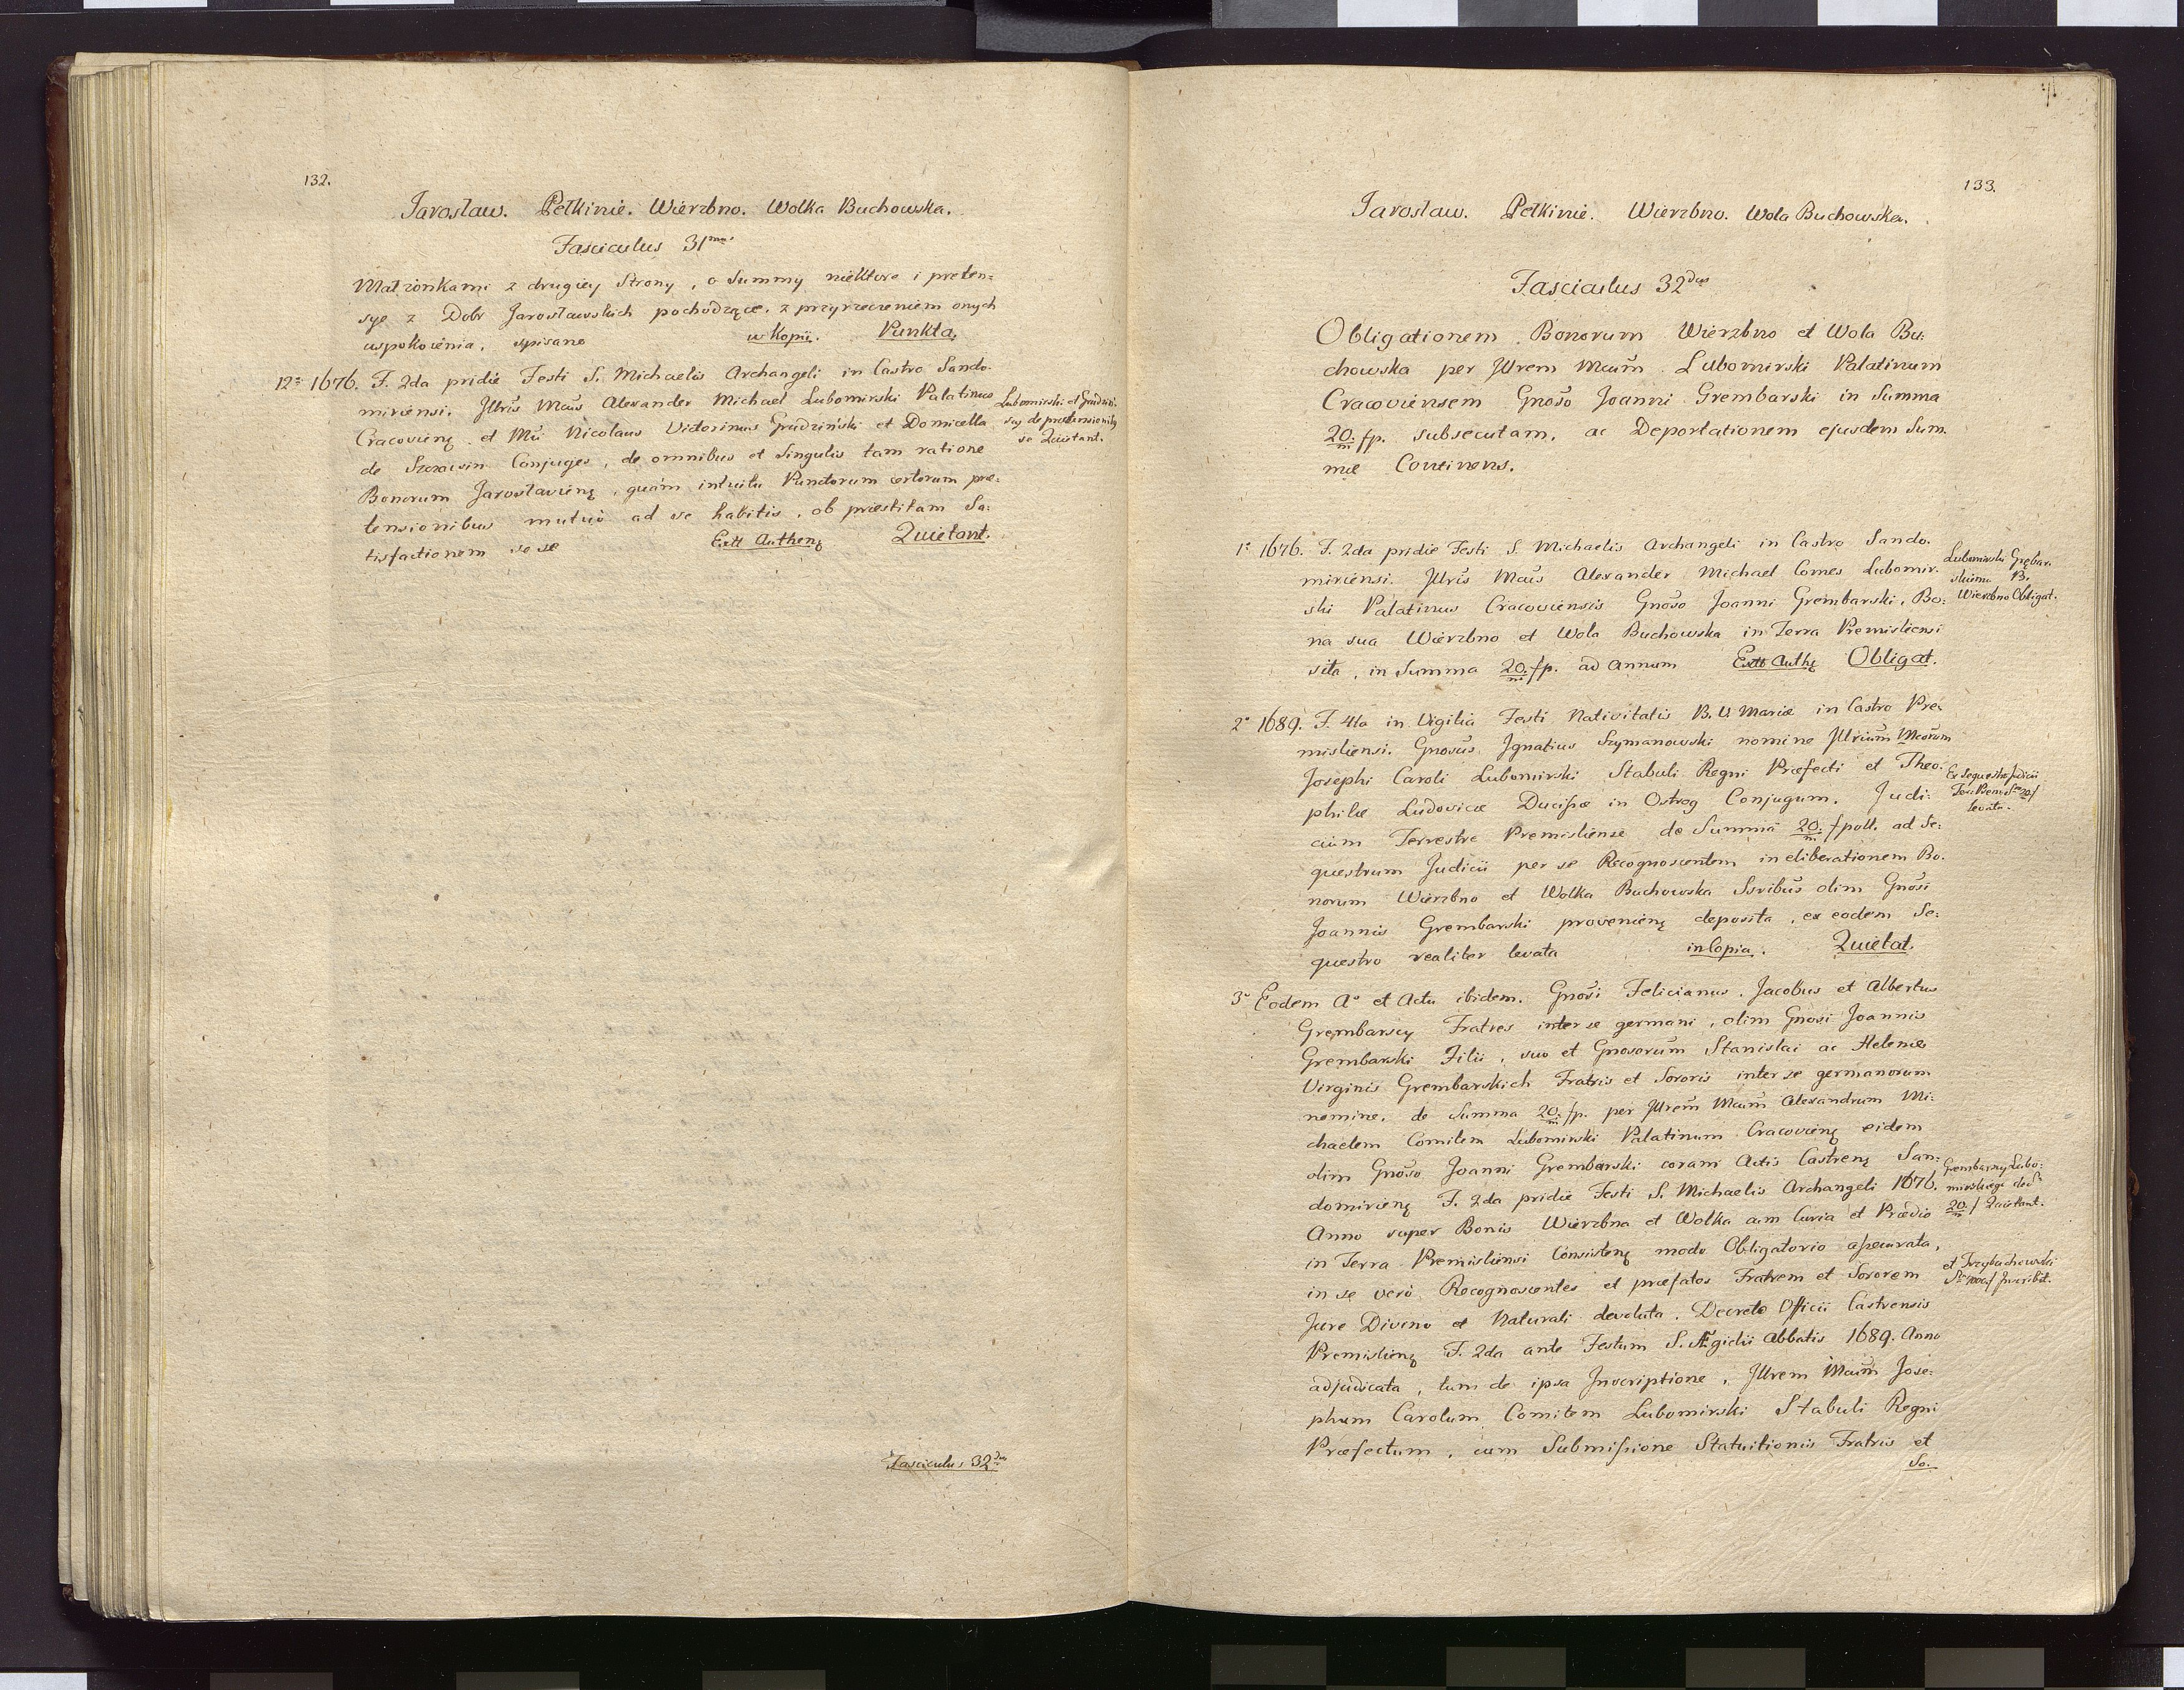 132.
Jarosław. Pełkinie. Wierzbno. Wolka Buchowska.
Fasciculus 31mus
Małżonkami z drugiey Strony, o Summy niektore i preten=
sye z Dobr Jarosławskich pochodzące, z przyrzeczeniem onych
uspokoienia, spisane w Kopii. Punkta.
12° 1676. F. 2da pridie Festi S. Michaelis Archangeli in Castro Sando-
miriensi. Jllris Mcus Alexander Michael Lubomirski Palatinus
Cracovienę et Mci Nicolaus Victorinus Grudziński et Domicella
de Szczawin Conjuges, de omnibus et Singulis tam ratione
Bonorum Jaroslavienę, quàm intuitu Punctorum certorum præ=
tensionibus mutuò ad se habitis, ob præstitam Sa=
tisfactionem se se Extt Authenę Quietant.
Lubomirski et Grudziń-
scy de prætensionibę
se Quietant.
Fasciculus 32dus
133.
Jarosław. Pełkinie. Wierzbno. Wola Buchowska.
Fasciculus 32dus
Obligationem Bonorum Wierzbno et Wola Bu=
chowska per Jllrem Mcum Lubomirski Palatinum
Cracoviensem Gnoso Joanni Grembarski in Summa
20/m fp. subsecutam, ac Deportationem ejusdem Sum=
mæ Continens.
1° 1676. F. 2da pridie Festi S. Michaelis Archangeli in Castro Sando-
miriensi. Jllris Mcus Alexander Michael Comes Lubomir-
ski Palatinus Cracoviensis Gnoso Joanni Grembarski, Bo=
na sua Wierzbno et Wola Buchowska in Terra Premisliensi
sita, in Summa 20/m fp. ad Annum Extt Authę Obligat.
Lubomirski Grębar-
skiemu B.
Wierzbno Obligat.
2° 1689. F. 4ta in Vigilia Festi Nativitatis B. V. Mariæ in Castro Pre=
misliensi. Gnosus Jgnatius Szymanowski nomine Jllrium Mcorum
Josephi Caroli Lubomirski Stabuli Regni Præfecti et Theo=
philæ Ludovicæ Ducissæ in Ostrog Conjugum. Judi=
cium Terrestre Premisliense de Summa 20/m fpoll. ad Se=
questrum Judicii per se Recognoscentem in eliberationem Bo=
norum Wierzbno et Wolka Buchowska Ssribus olim Gnosi
Joannis Grembarski provenienę deposita, ex eodem Se=
questro realiter levata in Copia. Quietat.
Ex Sequestro Judicii
Terr: Premisl: Sa 20/m f
levata.
3° Eodem A° et Actu ibidem. Gnosi Felicianus, Jacobus et Albertus
Grembarscy Fratres inter se germani, olim Gnosi Joannis
Grembarski Filii, suo et Gnosorum Stanislai ac Helenæ
Virginis Grembarskich Fratris et Sororis inter se germanorum
nomine, de Summa 20/m fp. per Jllrem Mcum Alexandrum Mi=
chaelem Comitem Lubomirski Palatinum Cracovienę eidem
olim Gnoso Joanni Grembarski coram Actis Castrenę San=
domirienę F. 2da pridie Festi S. Michaelis Archangeli 1676.
Anno super Bonis Wierzbna et Wolka cum Curia et Prædio
in Terra Premisliensi Consistenę modo Obligatorio assecurata,
in se verò Recognoscentes et præfatos Fratrem et Sororem
Jure Divino et Naturali devoluta, Decreto Officii Castrensis
Premislienę F. 2da ante Festum S. Ægidii Abbatis 1689. Anno
adjudicata, tum de ipsa Jnscriptione, Jllrem Mcum Jose=
phum Carolum Comitem Lubomirski Stabuli Regni
Præfectum, cum Submissione Statuitionis Fratris et
So-
Grembarscy Lubo=
mirskiego de Sa
20/m f Quietant.
et Przybuchowski
Sa 1000 f Jnscribit.